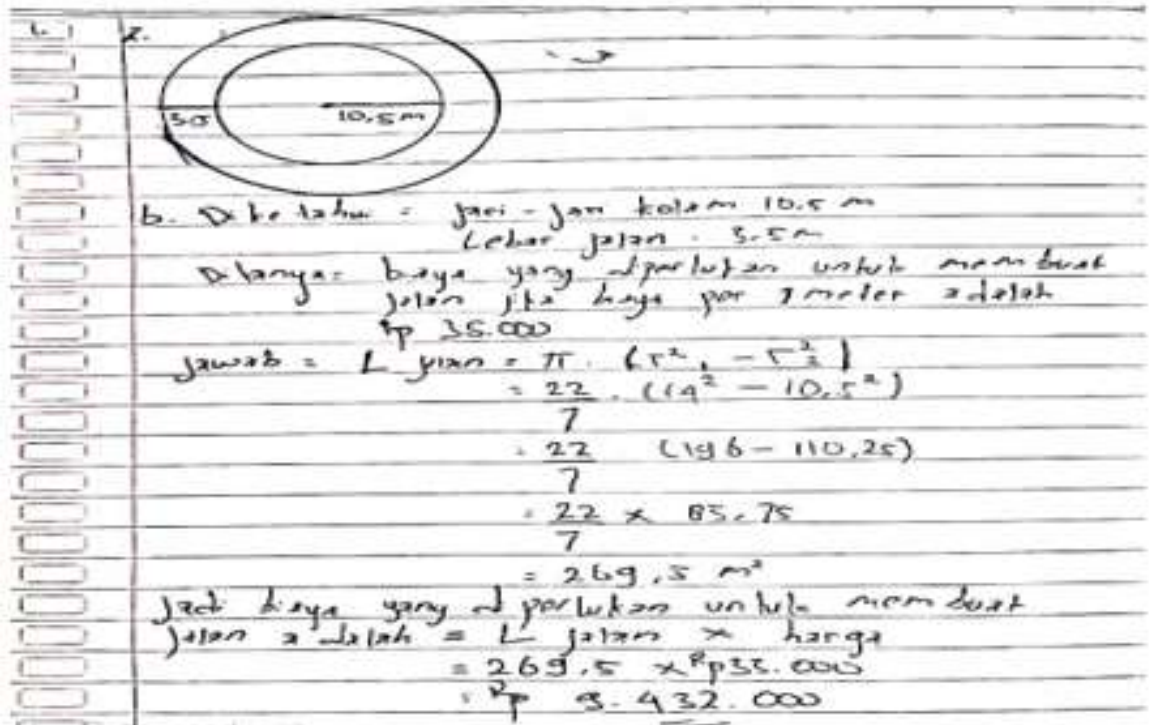 1. a.
3.5 10,5 m
b. Diketahui = jari-jari kolam 10.5 m
Lebar jalan = 3.5 m
Ditanya = biaya yang diperlukan untuk membuat
jalan jika biaya per 1 meter adalah
Rp 35.000
Jawab = L jalan = π . (r²₁ - r²₂)
= 22/7 . (14² - 10,5²)
= 22/7 (196 - 110,25)
= 22/7 x 85.75
= 269,5 m²
Jadi biaya yang diperlukan untuk membuat
jalan adalah = L jalan x harga
= 269.5 x Rp35.000
= Rp 9.432.000